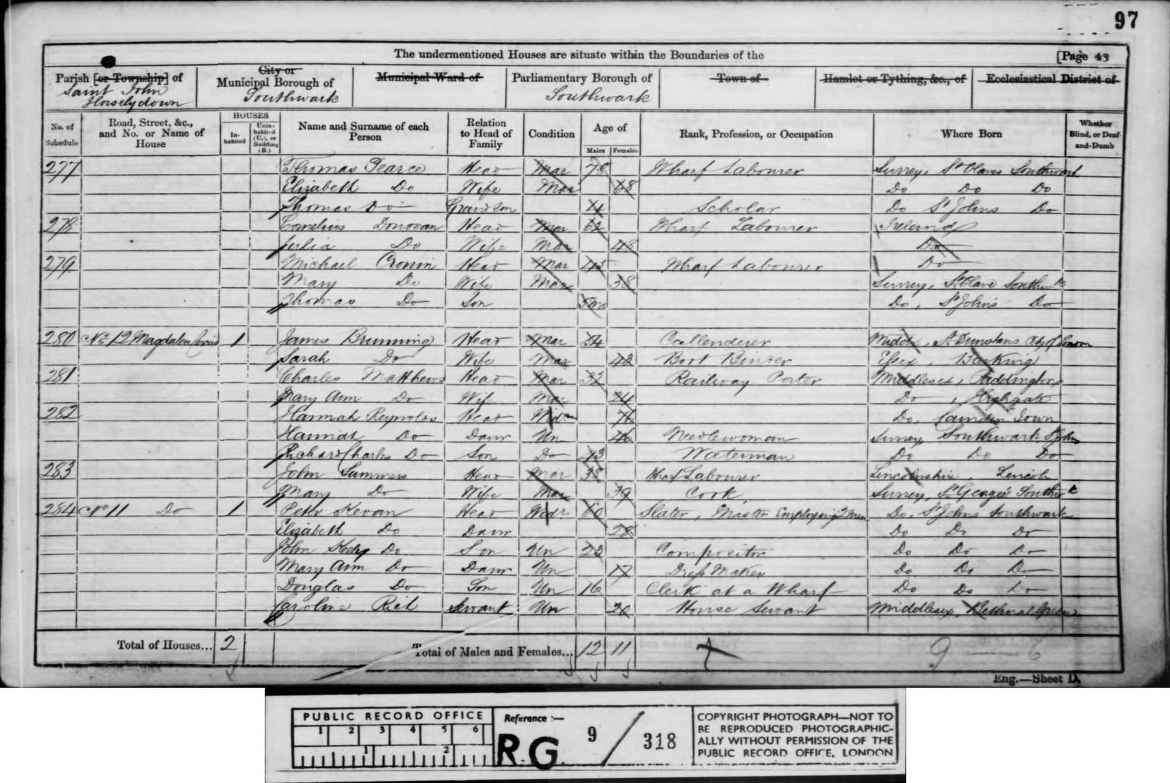 97
The undermentioned Houses are situate within the Boundaries of the [Page 43
Parish [or Township] of Saint John Horselydown
City or Municipal Borough of Southwark
Municipal Ward of
Parliamentary Borough of Southwark
Town of
Hamlet or Tything, &c., of
Ecclesiastical District of
No. of Schedule
Road, Street, &c., and No. or Name of House
HOUSES
Inhabited
Uninhabited (U.), or Building (B.)
Name and Surname of each Person
Relation to Head of Family
Condition
Age of
Males
Females
Rank, Profession, or Occupation
Where Born
Whether Blind, or Deaf-and-Dumb
277 Thomas Pearce Head Mar 78 Wharf Labourer Surrey, St Olaves Southwark
Elizabeth Do Wife Mar 68 Do Do Do
Thomas Do Grandson 4 Scholar Do St Johns Do
278 Cornelius Donovan Head Mar 62 Wharf Labourer Ireland
Julia Do Wife Mar 48 Do
279 Michael Cronin Head Mar 45 Wharf Labourer Do
Mary Do Wife Mar 38 Surrey, St Olave Southwk
Thomas Do Son Do, St John's Do
280 No 12 Magdalen 1 James Brunning Head Mar 34 Middx, St Dunstans City of London
Sarah Do Wife Mar 42 Boot Binder Essex, Barking
281 Charles Matthews Head Mar 32 Railway Porter Middlesex, Paddington
Mary Ann Do Wife Mar 24 Do, Highgate
282 Hannah Reynolds Head Wid 71 Do, Camden Town
Hannah Do Daur Un 46 Needlewoman Surrey Southwark St John
Richard Charles Do Son Do 43 Waterman Do Do Do
283 John Summers Head Mar 38 Wharf Labourer Lincolnshire Lincoln
Mary Do Wife Mar 39 Cook, Surrey, St George Southwk
284 No 11 Do 1 Peter Kevan Head Widr 60 Slater, Master Employing 2 men Do, St Johns Southwark
Elizabeth Do Daur 28 Do Do Do
John Do Son Un 23 Compositor Do Do Do
Mary Ann Do Daur Un 17 Dress Maker Do Do Do
Douglas Do Son Un 16 Clerk at a Wharf Do Do Do
Caroline Servant Un 20 House Servant Middlesex, Bethnal Green
Total of Houses... 2 Total of Males and Females... 12 11 9 6
Eng.—Sheet D.
PUBLIC RECORD OFFICE
1 2 3 4 5 6
1 2
Reference :-
R.G. 9 / 318
COPYRIGHT PHOTOGRAPH—NOT TO
BE REPRODUCED PHOTOGRAPHIC-
ALLY WITHOUT PERMISSION OF THE
PUBLIC RECORD OFFICE, LONDON